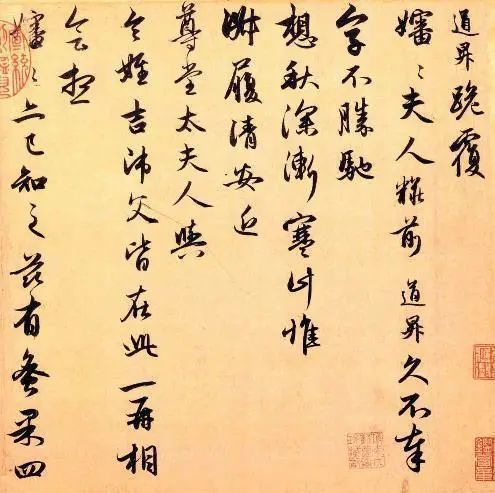 道昇跪覆
嬸〻夫人糚前道昇久不奉
字不勝馳
想秋深漸寒計惟
淑履清安近
尊堂太夫人與
令姪吉師父皆在此一再相
會想
嬸〻亦已知之茲有蜜果四